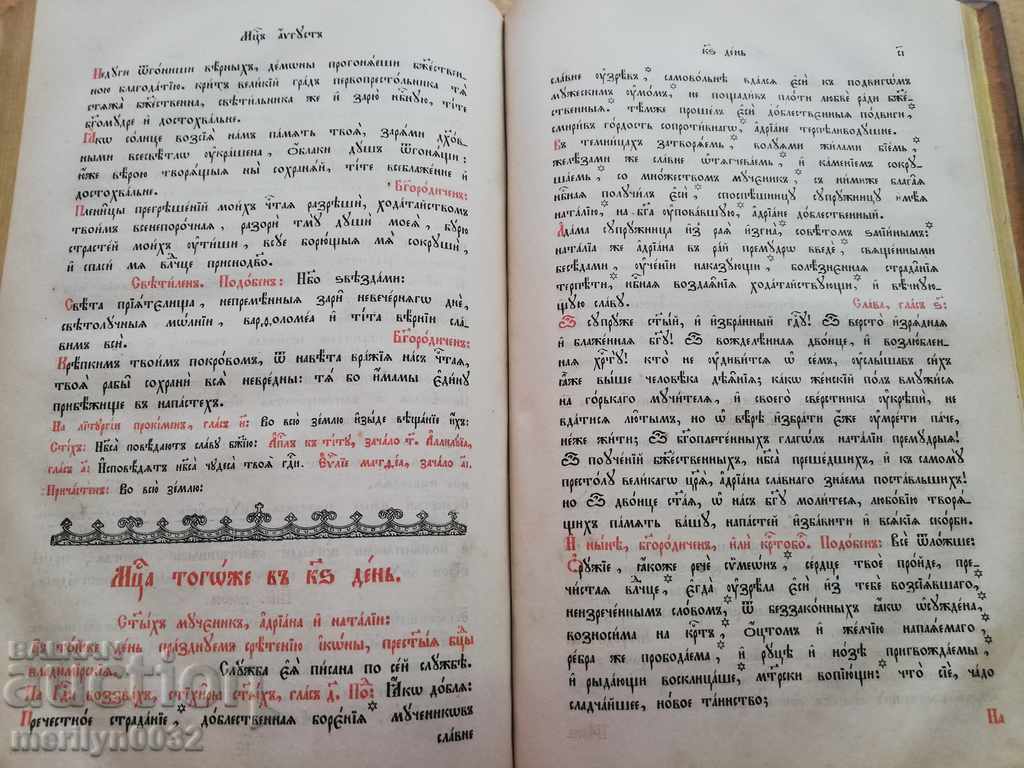 Мцⷭ҇ъ а҆́ѵгꙋстъ
Недꙋги ѿгониши вѣрныхъ, демѡны прогонѧеши бж҃ествен-
ною благодатїю. критъ великїй градъ первопрестольника тѧ
стѧжа бж҃ественна, свѣтильника же и҆ зарю нбⷭ҇нꙋю, тіте
бг҃омꙋдре и҆ достохвальне.
Ꙗкѡ солнце возсїѧ намъ память твоѧ̀, зарѧми дꙋхѡв-
ными всесвѣтлѡ ᲂу҆крашена, ѻ҆блаки дꙋшъ ѿгонѧщи:
ю҆́же вѣрою творѧщыѧ ны̀ сохранѧй, тіте всеблаженне и҆
достохвальне.
Бг҃ородиченъ:
Плєницы прегрѣшенїй моихъ чⷭ҇таѧ разрѣши, ходатайствомъ
твоимъ всенепорочнаѧ, разори тмꙋ дꙋши моеѧ, бꙋрю
страстей моихъ ᲂу҆тиши, всꙋе борющыѧ мѧ̀ сокрꙋши,
и҆ спаси мѧ̀ влⷣчце приснодв҃о.
Свѣтиленъ. Подобенъ: Нб҃о ѕвѣздами:
Свѣта прїѧтелища, непремѣнныѧ зари невечернѧгѡ днѐ,
свѣтолꙋчныѧ мѡлнїи, варѳоломеа и҆ тіта вѣрнїи сла-
вимъ вси̑.
Бг҃ородиченъ:
Крѣпкимъ твоимъ покровомъ, ѿ навѣта вражїѧ насъ чⷭ҇таѧ,
твоѧ рабы̀ сохрани всѧ̀ невредны: тѧ́ бо и҆мамы є҆динꙋ
прибѣжище въ напастехъ.
На лїтꙋргїи прокіменъ, гласъ и҃: Во всю̀ землю и҆зыде вѣщанїе и҆́хъ:
Стїхъ: Нб҃са̀ повѣдаютъ славꙋ бж҃їю: А҆пⷭ҇лъ къ тітꙋ, зачало т҃. Аллилꙋїа,
гласъ а҃: И҆сповѣдѧтъ нб҃са̀ чꙋдеса твоѧ̀ гдⷭ҇и. Є҆ѵⷢ҇лїе матѳеа, зачало а҃і.
Причастенъ: Во всю̀ землю:
Мцⷭ҇а тогѡже въ к҃ѕ день.
Ст҃ы́хъ мꙋченикъ, а҆дрїана и҆ наталїи:
Въ тойже день празднꙋемъ срѣтенїю і҆кѡны, прест҃ы́ѧ бцⷣы
владимїрскїѧ: Слꙋжба є҆ѧ̀ писана по сей слꙋжбѣ.
На Гдⷭ҇и воззвахъ, стїхиры ст҃ы́хъ, гласъ д҃. Поⷣ: Ꙗкѡ добла:
Пречестное страданїе,* доблественнаѧ боренїѧ* мꙋченикѡвъ
славне
к҃ѕ день
с҃і
славне ᲂу҆зрѣвъ,* самовольнѣ вдалсѧ є҆сѝ къ подвигомъ
мꙋжескимъ ᲂу҆момъ, не пощадивъ плоти любвѐ ради бж҃е-
ственныѧ. тѣмже прошелъ є҆сѝ доблественныѧ подвиги,*
смиривъ гордость сопротивнагѡ,* а҆дрїане терпѣливодꙋшне.
Въ темницахъ затворѧемь,* волꙋѧми жилами бїемь,*
желѣзами же славне ѡ҆тѧгчеваемь,* и҆ каменїемъ сокрꙋ-
шаемь,* со множествомъ мꙋченикъ,* съ нимиже благаѧ
нбⷭ҇наѧ полꙋчилъ є҆сѝ,* споспѣшницꙋ сꙋпрꙋжницꙋ и҆мѣѧ
наталїю,* на бг҃а ᲂу҆повавшꙋю,* а҆дрїане доблественный.
А҆дама сꙋпрꙋжница и҆з̾ раѧ̀ и҆згна,* совѣтомъ ѕмїинымъ:*
наталїа же а҆дрїана въ рай премꙋдрѡ введѐ,* сщ҃енными
бесѣдами,* ᲂу҆ченїи наказꙋющи,* болѣзненнаѧ страданїѧ
терпѣти,* нбⷭ҇наѧ воздаѧнїѧ ходатайствꙋющи,* и҆ вѣчнꙋю-
щꙋю славꙋ.
Слава, гласъ ѕ҃:
Ѽ сꙋпрꙋже ст҃ы́й, и҆ и҆збранный гдⷭ҇ꙋ! ѽ версто̀ и҆зрѧднаѧ
и҆ блаженнаѧ бг҃ꙋ! ѽ вожделѣннаѧ двоице, и҆ возлюблен-
наѧ хрⷭ҇тꙋ! кто̀ не ᲂу҆дивитсѧ ѡ҆ семъ, ᲂу҆слышавъ сихъ
ꙗ҆́же выше человѣка дѣѧнїѧ; какѡ женскїй полъ вмꙋжисѧ
на горькаго мꙋчителѧ, и҆ своего̀ сверстника ᲂу҆крѣпи, не
вдатисѧ лютымъ, но ѡ҆ вѣрѣ и҆збрати є҆́же ᲂу҆мрети паче,
неже жити; ѽ бг҃оплетенныхъ глагѡлъ наталїи премꙋдрыѧ!
ѽ поꙋченїй бж҃ественныхъ, нб҃са̀ прешедшихъ, и҆ къ самомꙋ
престолꙋ великагѡ цр҃ѧ̀, а҆дрїана славнаго знаема поставльшихъ!
ѽ двоице ст҃а́ѧ, ѡ҆ насъ бг҃ꙋ молитесѧ, любовїю творѧ-
щихъ память вашꙋ, напастей и҆збавити и҆ всѧкїѧ скорби.
И҆ нынѣ, бг҃ородиченъ, и҆лѝ крⷭ҇тобоⷢ҇. Подобенъ: Все ѿложше:
Ѻ҆рꙋжїе,* ꙗ҆́коже речѐ сѷмеѡнъ,* сердце твоѐ пройде, пре-
чистаѧ влⷣчце,* є҆гда̀ ᲂу҆зрѣла є҆сѝ и҆з̾ тебѐ возсїѧвшаго,*
неизреченнымъ словомъ,* ѿ беззаконныхъ ꙗ҆́кѡ ѡ҆сꙋждена,*
возносима на крⷭ҇тъ,* ѻ҆цтомъ и҆ желчїю напаѧемаго,*
ребра же прободаема,* и҆ рꙋцѣ и҆ нозѣ пригвождаемы,*
и҆ рыдающи восклицаше, мт҃рски вопїющи:* что̀ сїѐ, чадо
сладчайшее, новое таинство;
На
BALKAN auction
merilyn0032